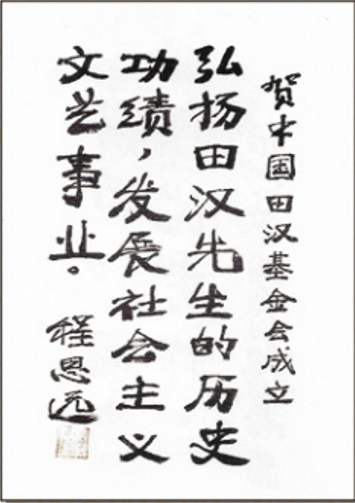 贺中国田汉基金会成立
弘扬田汉先生的历史
功绩，发展社会主义
文艺事业。
程思远